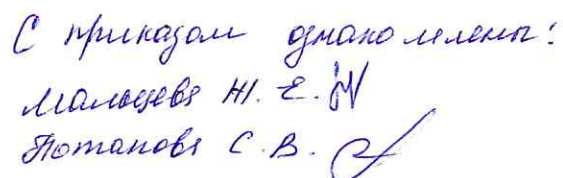 С приказом ознакомлены:
Мальцева Ж. Е.
Потапова С. В.